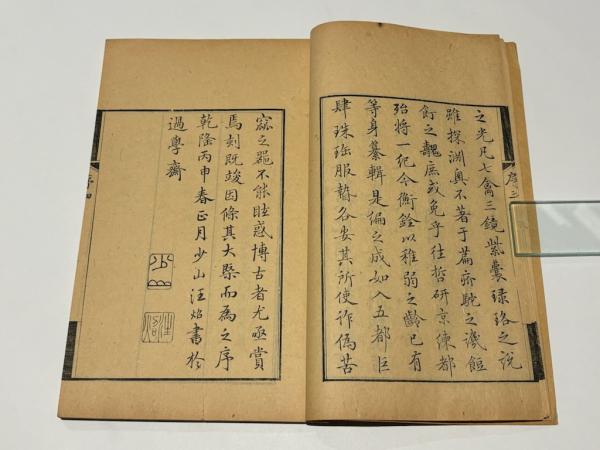 序三
之光凡七禽三鏡紫囊琭珞之說
雖探淵奧不著于篇齊駝之譏餖
飣之庶或免乎往哲研京練都
殆將一紀今衡銓以稚弱之齡已有
等身纂輯是編之成如入五都巨
肆珠珤服贄各安其所使作偽苦
窳之器不能眩惑博古者尤亟賞
焉刻既竣因條其大槩而為之序
乾隆丙申春正月少山汪炤書於
過學齋
少山
序四